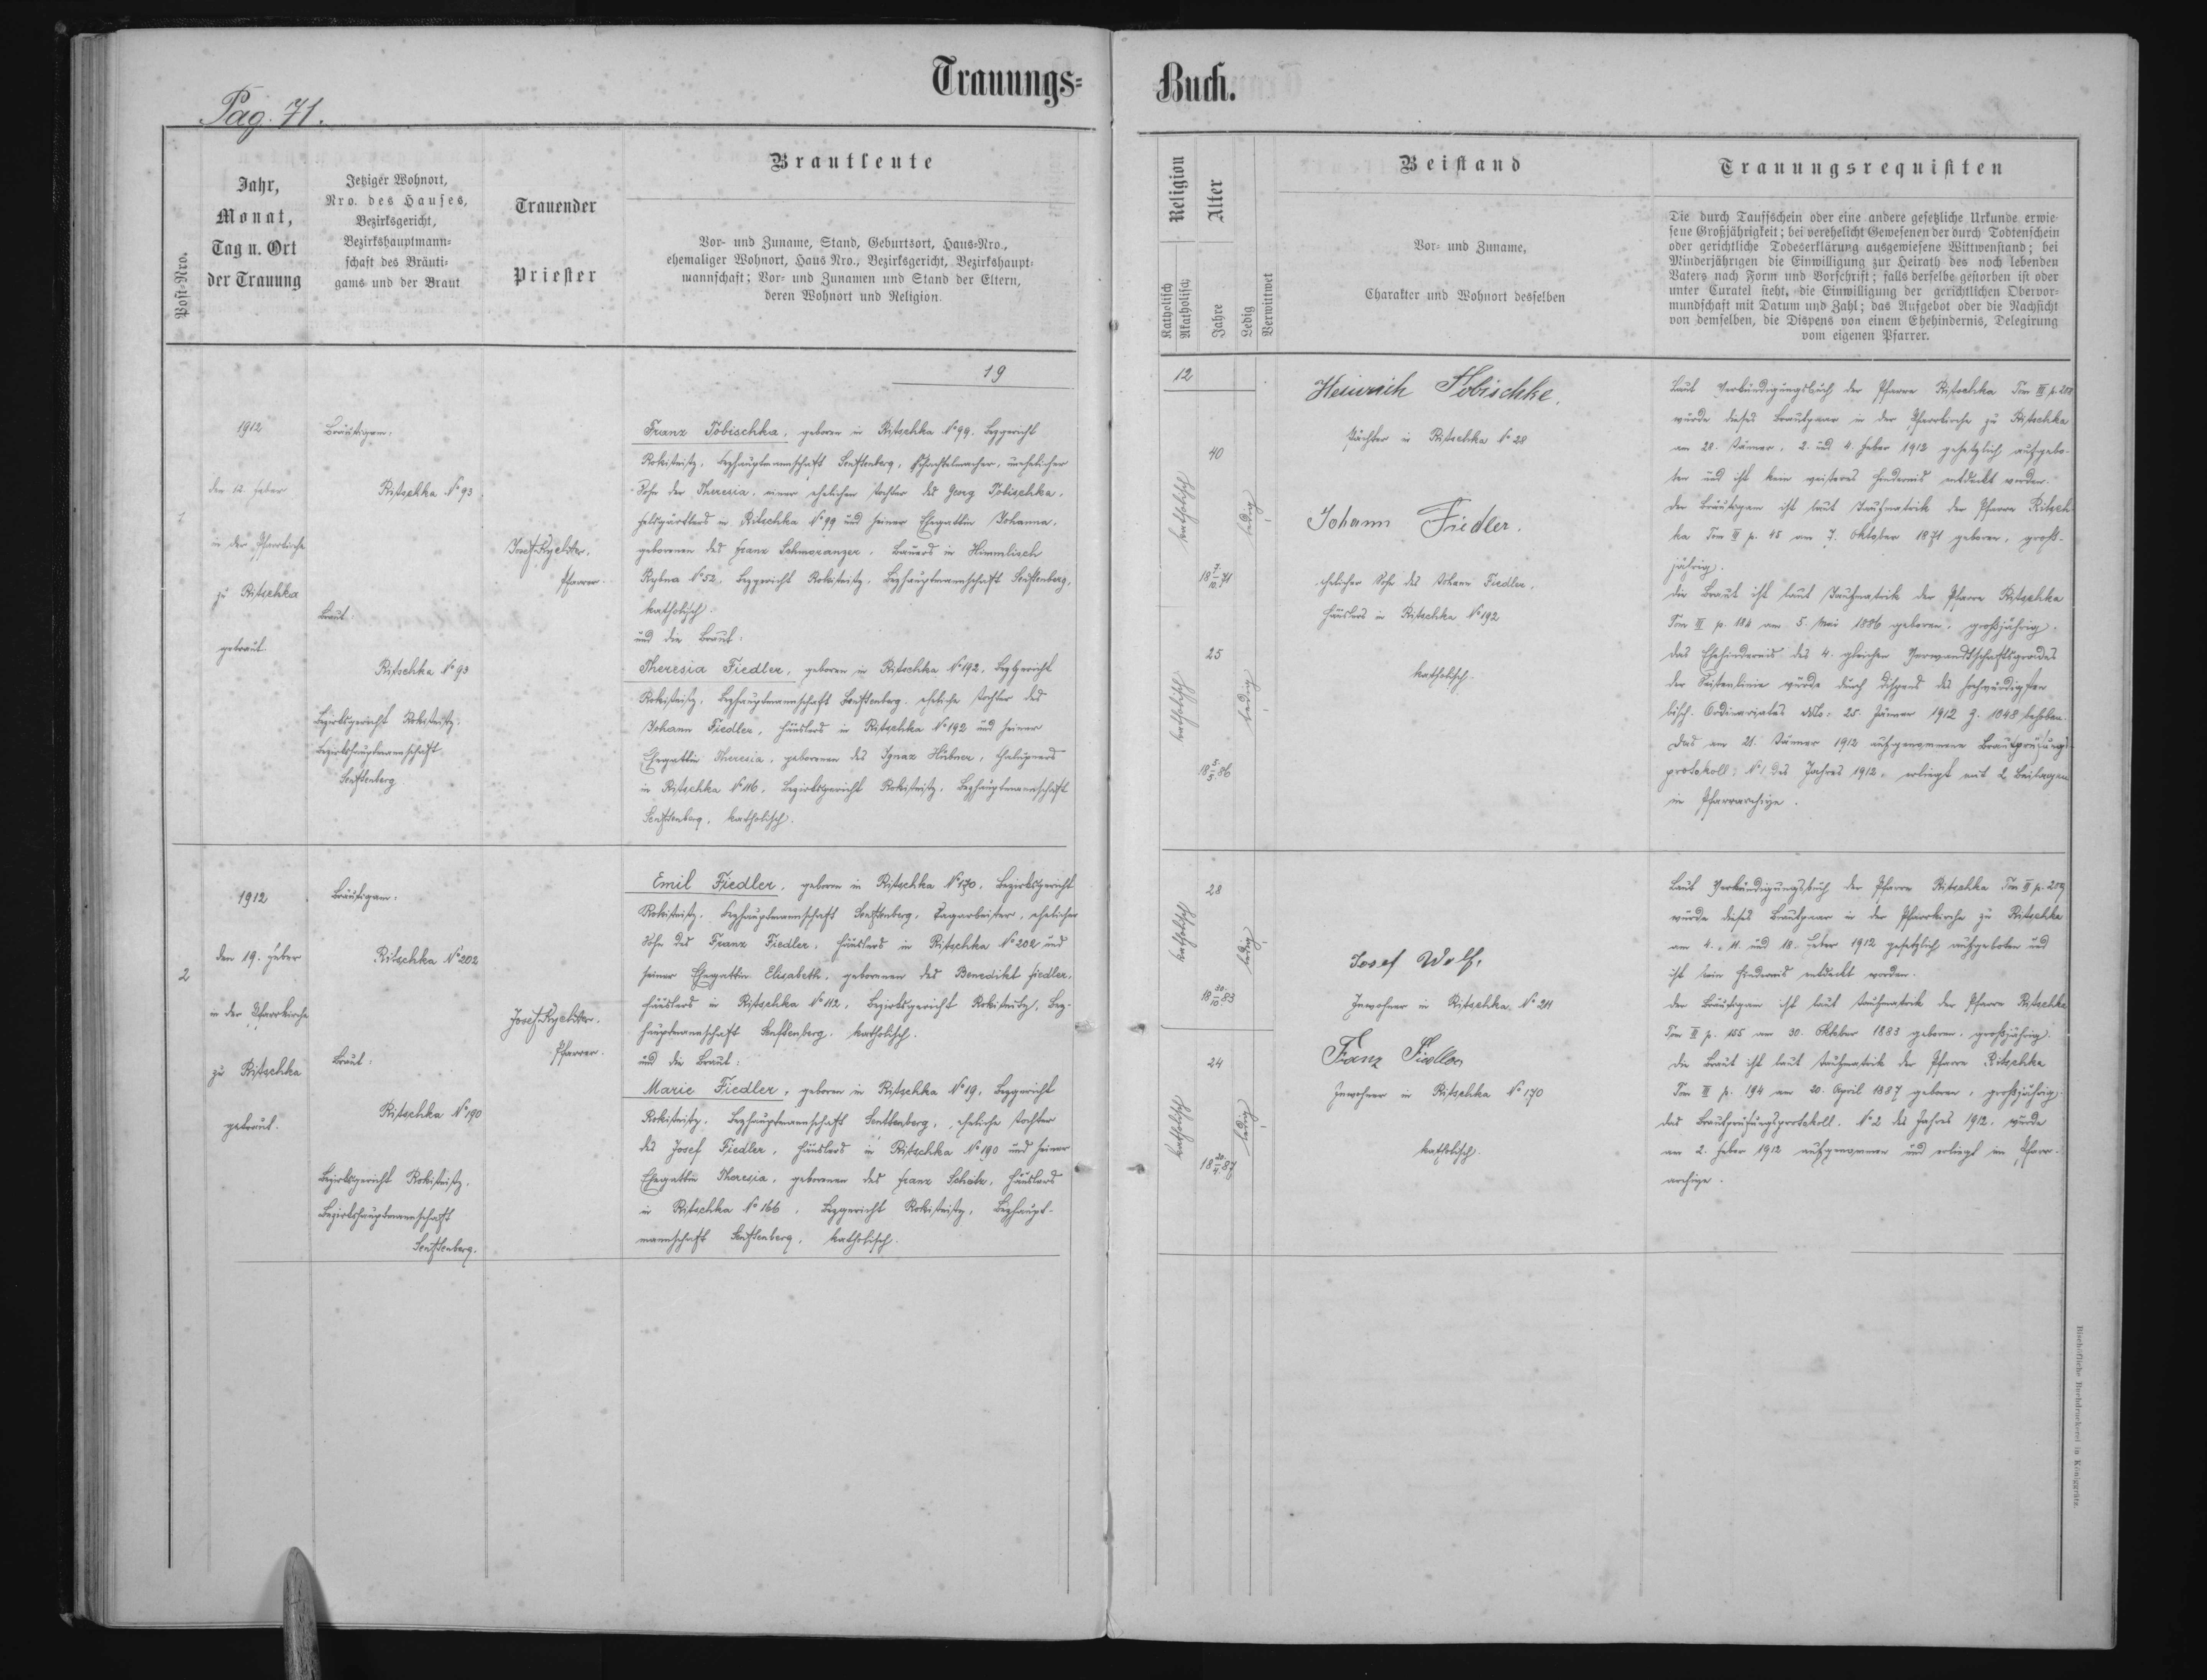 Trauungs=
Buch.
Pag. 71.
Post-Nro.
Jahr,
Monat,
Tag u. Ort
der Trauung
Jetziger Wohnort,
Nro. des Hauses,
Bezirksgericht,
Bezirkshauptmann=
schaft des Bräuti=
gams und der Braut
Trauender
Priester
Brautleute
Vor- und Zuname, Stand, Geburtsort, Haus=Nro.,
ehemaliger Wohnort, Haus Nro., Bezirksgericht, Bezirkshaupt=
mannschaft; Vor- und Zunamen und Stand der Eltern,
deren Wohnort und Religion.
Religion
Katholisch
Akatholisch
Alter
Jahre
Ledig
Verwittwet
Beistand
Vor- und Zuname,
Charakter und Wohnort desselben
Trauungsrequisiten
Die durch Taufschein oder eine andere gesetzliche Urkunde erwie=
sene Großjährigkeit; bei verehelicht Gewesenen der durch Todtenschein
oder gerichtliche Todeserklärung ausgewiesene Wittwenstand; bei
Minderjährigen die Einwilligung zur Heirath des noch lebenden
Vaters nach Form und Vorschrift; falls derselbe gestorben ist oder
unter Curatel steht, die Einwilligung der gerichtlichen Obervor=
mundschaft mit Datum und Zahl; das Aufgebot oder die Nachsicht
von demselben, die Dispens von einem Ehehindernis, Delegirung
vom eigenen Pfarrer.
19
12
1
1912
den 12. Feber
in der Pfarrkirche
zu Ritschka
getraut
Bräutigam:
Ritschka No 93.
Braut
Ritschka No 93
Bezirksgericht Rokitnitz,
Bezirkshauptmannschaft
Senftenberg
Josef Rychter,
Pfarrer.
Franz Tobischka, geboren in Ritschka No 99. Bezgericht
Rokitnitz, Bezhauptmannschaft Senftenberg, Schachtelmacher, unehelicher
Sohn der Theresia, einer ehelichen Tochter des Georg Tobischka,
Feldgärtlers in Ritschka No 99 und seiner Ehegattin Johanna,
geborenen des Franz Schmoranzer, Bauers in Himmlisch
Rybna No 52, Bezgericht Rokitnitz, Bezhauptmannschaft Senftenberg,
katholisch:
und die Braut:
Theresia Fiedler, geboren in Ritschka No 192, Bezgericht
Rokitnitz, Bezhauptmannschaft Senftenberg, eheliche Tochter des
Johann Fiedler, Häuslers in Ritschka No 192 und seiner
Ehegattin Theresia, geborenen des Ignaz Hübner, Chalupners
in Ritschka No 116, Bezirksgericht Rokitnitz, Bezhauptmannschaft
Senftenberg, katholisch.
katholisch
40
18 7/10 71
ledig
katholisch
25
18 5/5 86
ledig
Heinrich Tobischke.
Pächter in Ritschka No 28
Johann Fiedler.
ehelicher Sohn des Johann Fiedler,
Häuslers in Ritschka No 192
katholisch.
Laut Verkündigungsbuch der Pfarre Ritschka Tom III p. 258
wurde dieses Brautpaar in der Pfarrkirche zu Ritschka
am 28. Jänner, 2. und 4. Feber 1912 gesetzlich aufgebo-
ten und ist kein weiteres Hindernis entdeckt worden.
Der Bräutigam ist laut Taufmatrik der Pfarre Ritsch-
ka Tom II p. 45 am 7. Oktober 1871 geboren, groß-
jährig.
Die Braut ist laut Taufmatrik der Pfarre Ritschka
Tom III p. 184 am 5. Mai 1886 geboren, großjährig.
Das Ehehindernis des 4. gleichen Verwandtschaftsgrades
der Seitenlinie wurde durch Dispens des hochwürdigsten
bisch. Ordinariates ddto: 25. Jänner 1912 Z. 1048 behoben.
Das am 21. Jänner 1912 aufgenommene Brautprüfungs-
protokoll: No 1 des Jahres 1912, erliegt mit 2 Beilagen
im Pfarrarchive.
2
1912
den 19. Feber
in der Pfarrkirche
zu Ritschka
getraut.
Bräutigam:
Ritschka No 202
Braut:
Ritschka No 190
Bezirksgericht Rokitnitz,
Bezirkshauptmannschaft
Senftenberg.
Josef Rychter.
Pfarrer.
Emil Fiedler, geboren in Ritschka No 170, Bezirksgericht
Rokitnitz, Bezhauptmannschaft Senftenberg, Tagarbeiter, ehelicher
Sohn des Franz Fiedler, Häuslers in Ritschka No 202 und
seiner Ehegattin Elisabeth, geborenen des Benedikt Fiedler,
Häuslers in Ritschka No 112, Bezirksgericht Rokitnitz, Bez-
hauptmannschaft Senftenberg, katholisch.
und die Braut:
Marie Fiedler, geboren in Ritschka No 19, Bezgericht
Rokitnitz, Bezhauptmannschaft Senftenberg, eheliche Tochter
des Josef Fiedler, Häuslers in Ritschka No 190 und seiner
Ehegattin Theresia, geborenen des Franz Scholz, Häuslers
in Ritschka No 166, Bezgericht Rokitnitz, Bezhaupt-
mannschaft Senftenberg, katholisch.
katholisch
28
18 30/10 83
ledig
katholisch
24
18 20/4 87
ledig
Josef Wolf,
Inwohner in Ritschka, No 211
Franz Fiedler
Inwohner in Ritschka No 170
katholisch.
Laut Verkündigungsbuch der Pfarre Ritschka Tom II p. 259
wurde dieses Brautpaar in der Pfarrkirche zu Ritschka
am 4., 11. und 18. Feber 1912 gesetzlich aufgeboten und
ist kein Hindernis entdeckt worden.
Der Bräutigam ist laut Taufmatrik der Pfarre Ritschka
Tom III p. 155 am 30. Oktober 1883 geboren, großjährig.
Die Braut ist laut Taufmatrik der Pfarre Ritschka
Tom III p. 194 am 20. April 1887 geboren, großjährig;
das Brautprüfungsprotokoll. No 2 des Jahres 1912, wurde
am 2. Feber 1912 aufgenommen und erliegt im Pfarr-
archive.
Bischöfliche Buchdruckerei in Königgrätz.